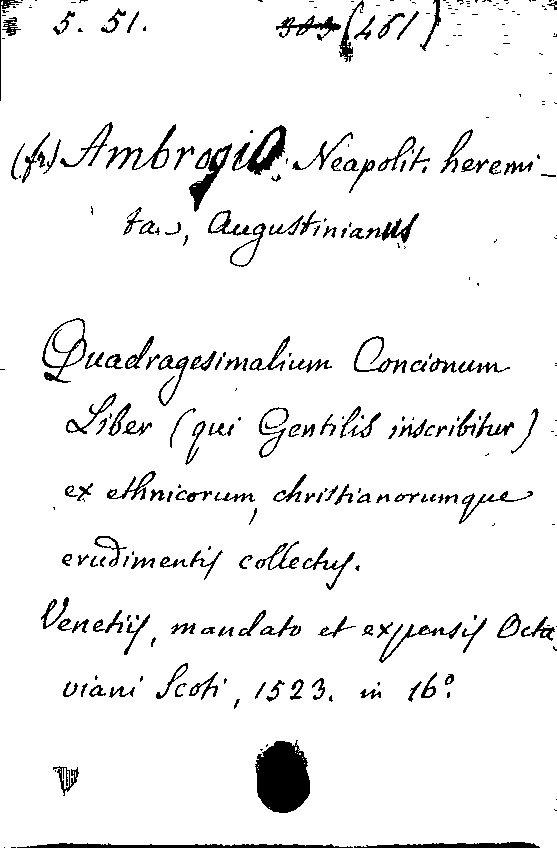 5. 51. 303 (461)
(fr) Ambrogio. Neapolit. heremi-
ta, Augustinianus
Quadragesimalium Concionum
Liber (qui Gentilis inscribitur)
ex ethnicorum, christianorumque
erudimentis collectus.
Venetiis, mandato et expensis Octa
viani Scoti, 1523. in 16º.